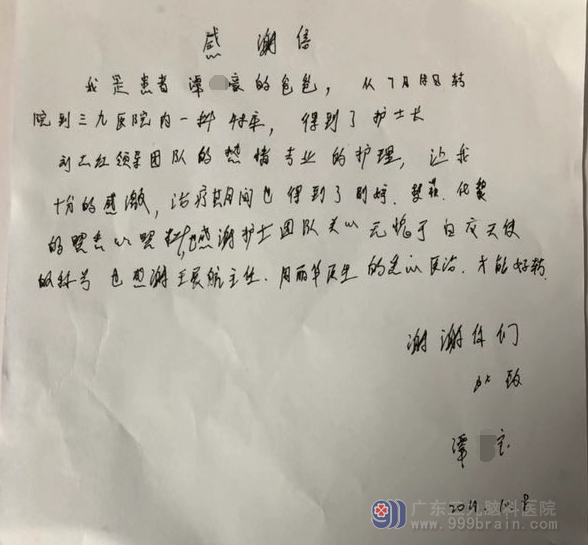 感谢信
我是患者谭 豪的爸爸，从7月 转
院到三九医院内一科 来，得到了护士长
刘志红领导团队的热情专业的护理，让我
十分的感激，治疗期间也得到了
的 感谢护士团队 无愧于白衣天使
的称号也感谢王展航主任．周丽华医生的 医治．才能好转．
谢谢你们
此致
谭 宝
广东三九脑科医院
www.999brain.com